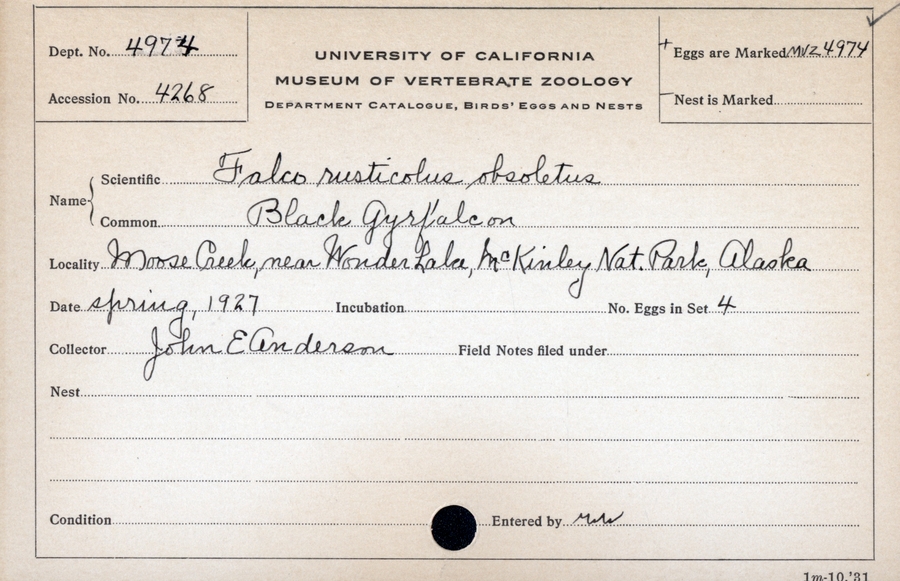 Dept. No. 4974
Accession No. 4268
UNIVERSITY OF CALIFORNIA
MUSEUM OF VERTEBRATE ZOOLOGY
DEPARTMENT CATALOGUE, BIRDS' EGGS AND NESTS
+ Eggs are Marked MVZ 4974
— Nest is Marked
Name { Scientific Falco rusticolus obsoletus
Common Black Gyrfalcon
Locality Moose Creek, near Wonder Lake, McKinley Nat. Park, Alaska
Date spring, 1927 Incubation No. Eggs in Set 4
Collector John E Anderson Field Notes filed under
Nest
Condition Entered by
1m-10,'31